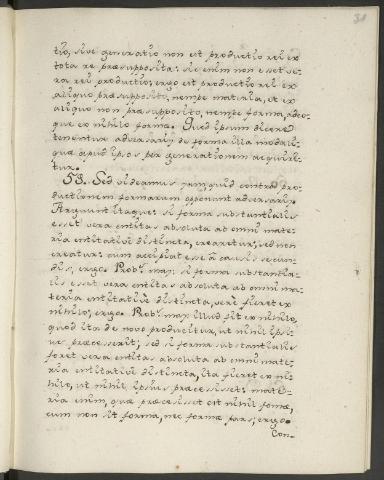 31
tio, sive generatio non est productio rei ex
tota re præsupposita: si enim non esset ve-
ra rei productio; ergo est productio rei ex
aliquo præsupposito, nempe materia, et ex
aliquo non præsupposito, nempe forma, adeo-
que ex nihilo formæ. Quod ipsum dicere
tenentur adversarij de forma illa modali,
quæ apud ipsos per generationem acquiri-
tur.
53. Sed videamus jam, quid contra pro-
ductionem formarum opponant adversarij.
Arguunt itaque: si forma substantialis
esset vera entitas absoluta ab omni mate-
ria entitativè distincta, crearetur; sed non
creatur: cum accipiat esse à causis secun-
dis, ergo. Probr. maj: si forma substantia-
lis esset vera entitas absoluta ab omni ma-
teria entitativè distincta, verè fieret ex
nihilo; ergo. Probr. maj: illud fit ex nihilo,
quod ita de novo producitur, ut nihil ipsi-
us præcesserit; sed si forma substantialis
foret vera entitas absoluta ab omni mate-
ria entitativè distincta, ita fieret ex ni-
hilo, ut nihil ipsius præcessisset: mate-
ria enim, quæ præcesisset est nihil formæ,
cum non sit forma, nec formæ pars; ergo.
Con-